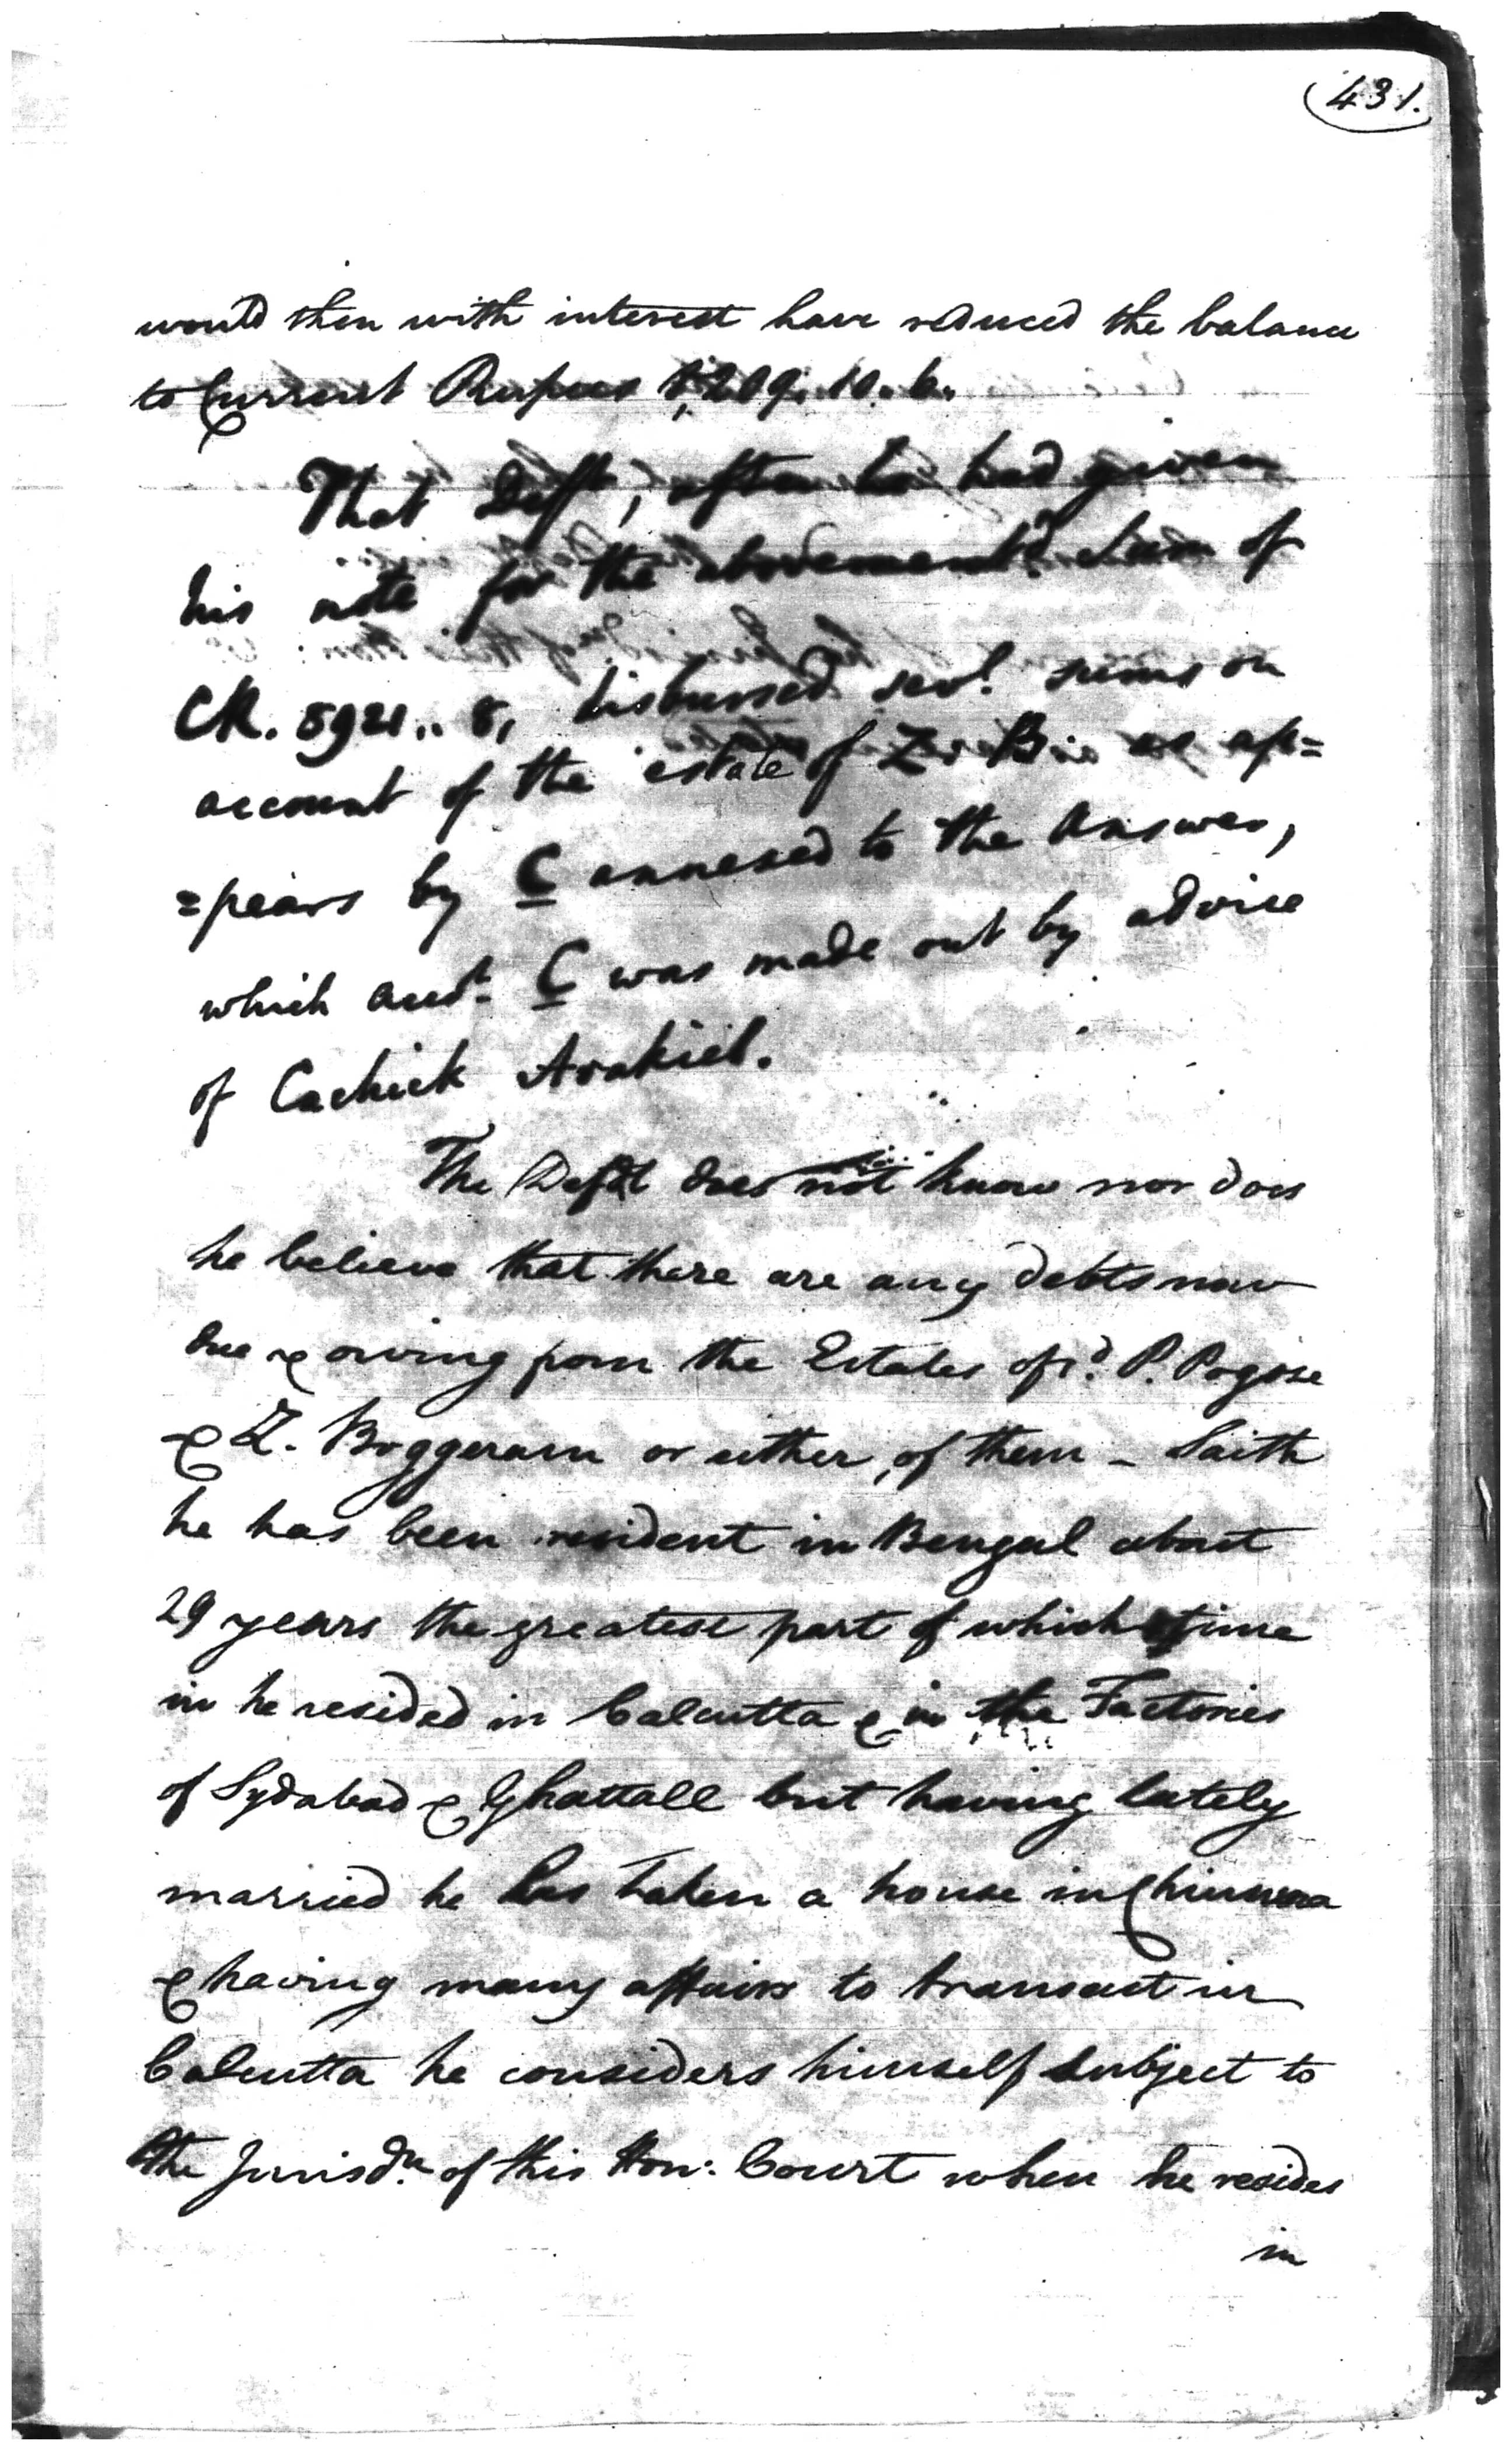 431.
would then with interest have reduced the balance
to Current Rupees 1,209. 10. 6.
That Deft, after he had given
his note for the abovement.d Sum of
CR. 5921.. 8, disbursed sevl. sums on
account of the estate of Z. B. as ap=
=pears by C annexed to the Answer,
which acct. C was made out by advice
of Cachick Arakiel.
The Defdt does not know nor does
he believe that there are any debts now
due & owing from the Estates of sd. P. Pogose
& Z. Boggeram or either of them - Saith
he has been resident in Bengal about
29 years the greatest part of which time
in he resided in Calcutta & in the Factories
of Sydabad & Ghattall but having lately
married he has taken a house in Chinsura
& having many affairs to transact in
Calcutta he considers himself subject to
the Jurisdn. of this Hon: Court when he resides
in